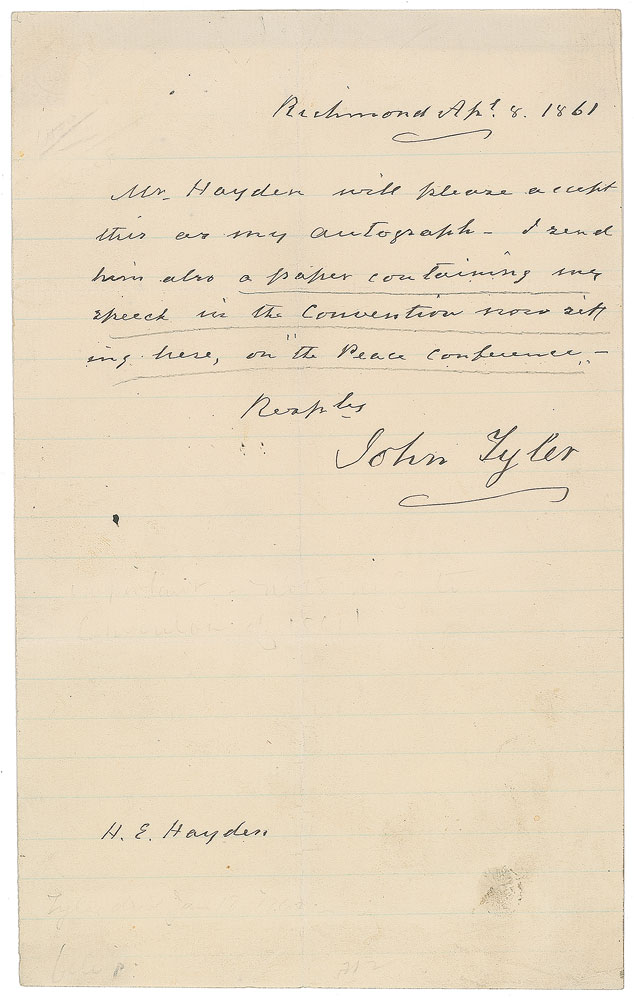 Richmond Apl. 8. 1861
Mr. Hayden will please accept
this as my autograph - I send
him also a paper containing my
speech in the Convention now sitt
ing here, on "the Peace Conference" -
Respfly
John Tyler
H. E. Hayden